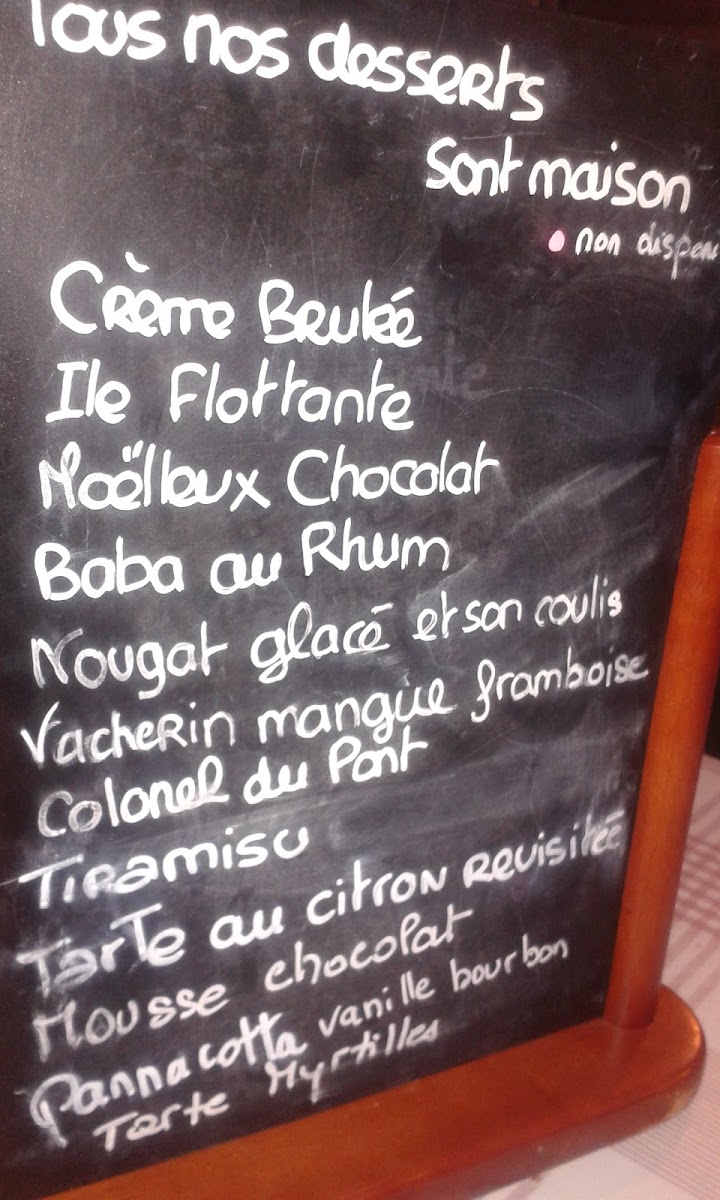 Tous nos desserts
sont maison
non dispon
Crème Brulée
Ile Flottante
Moëlleux Chocolat
Baba au Rhum
Nougat glacé et son coulis
Vacherin mangue framboise
Colonel du Pont
Tiramisu
Tarte au citron revisitée
Mousse chocolat
Pannacotta vanille bourbon
Tarte Myrtilles